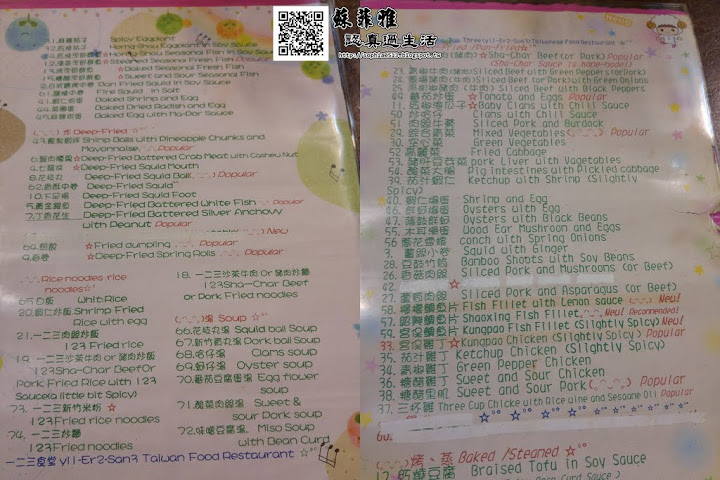 蘇菲雅
認真過生活
Spicy Eggplant
Hong-Shou Eggplant in Soy Sauce
Seasonal Fish in Soy Sauce
Steamed Seasonal Fresh Fish Popular
Seasonal Fresh Fish
☆Sweet and Sour Seasonal Fish
Pan Fried Squid in Soy Sauce
Fine Squid in Salt
Baked Shrimp and Egg
Baked Dried Radish and Egg
Baked Egg with Ma-Bor Sauce
炸 Deep-Fried ☆
Shrimp Balls with Pineapple Chunks and
Mayonnaise Popular
Deep-Fried Battered Crab Meat with Cashew Nut
☆Deep-Fried Squid Mouth
8.花枝丸 Deep-Fried Squid Ball Popular
Deep-Fried Squid
Deep-Fried Squid Foot
Deep-Fried Battered White Fish Popular
7.丁香花生 Deep-Fried Battered Silver Anchovy
with Peanut Popular
New
☆Fried dumpling Popular
9.春卷 ☆Deep-Fried Spring Rolls Popular
Rice noodles.rice
noodles☆
65.白飯 Whit.Rice
20.蝦仁炒飯 Shrimp Fried
Rice with egg
21.一二三肉絲炒飯
123 Fried rice
19.一二三沙茶牛肉 or 豬肉炒飯
123Sha-Char BeefOr
Pork Fried Rice with 123
Sauce(a little bit Spicy)
73.一二三新竹米粉 ☆
123Fried rice noodles
74.一二三炒麵
123Fried noodles
18.一二三沙茶牛肉 Or 豬肉炒麵
123Sha-Char Beef
or Pork Fried noodles
湯 Soup ☆
66.花枝丸湯 Squid ball Soup
67.新竹貢丸湯 Pork ball Soup
68.蛤仔湯 Clams soup
69.蚵仔湯 Oyster soup
70.蕃茄豆腐蛋湯 Egg flower
soup
71.酸菜肉絲湯 Sweet &
sour Pork soup
72.味噌豆腐湯 Miso Soup
with Bean Curd
一二三食堂 yi1-Er2-San3 Taiwan Food Restaurant
Three (yi1-Er2-San3) Taiwanese Food Restaurant
Fried /Pan-Fried
☆Sha-Char Beef(or Pork) Popular
(Sha-Char Sauce is home-made!)
Sliced Beef with Green Peppers(or Pork)
Sliced Beef(or Pork)with Green Onions
Sliced Beef with Black Peppers
49.蕃茄炒蛋 ☆Tomato and Eggs Popular
☆Baby Clams with Chili Sauce
50.炒蛤仔 Clams with Chili Sauce
51.肉絲牛蒡 Sliced Pork and Burdock
29.綜合素菜 Mixed Vegetables Popular
30.空心菜 Green Vegetables
52.高麗菜 Fried Cabbage
53.豬肝豆苔菜 pork Liver with Vegetables
54.酸菜大腸 Pig Intestines with Pickled cabbage
39.茄汁蝦仁 Ketchup with Shrimp (Slightly
Spicy)
40.蝦仁燴蛋 Shrimp and Egg
Oysters with Egg
Oysters with Black Beans
55.木耳燴蛋 Wood Ear Mushroom and Eggs
conch with Spring Onions
3. 薑絲小卷 Squid with Ginger
28.豆豉竹筍 Bamboo Shoots with Soy Beans
26.香菇肉絲 Sliced Pork and Mushrooms (or Beef)
42. ☆
27.蘆筍肉絲 Sliced Pork and Asparagus (or Beef)
58.檸檬鯛魚片 Fish Fillet with Lemon sauce New!
57.紹興鯛魚片 Shaoxing Fish Fillet New! Recommended!
59.宮保鯛魚片 Kungpao Fish Fillet (Slightly Spicy) New!
33.宮保雞丁☆Kungpao Chicken (Slightly Spicy) Popular
35.茄汁雞丁 Ketchup Chicken (Slightly Spicy)
34.青椒雞丁 Green Pepper Chicken
36.糖醋雞丁 Sweet and Sour Chicken
38.糖醋里肌 Sweet and Sour Pork Popular
37.三杯雞 Three Cup Chicke with Rice Wine and Sesame Oil Popular
60.
烤、蒸 Baked /Steaned ☆
12.紅燒豆腐 Braised Tofu in Soy Sauce